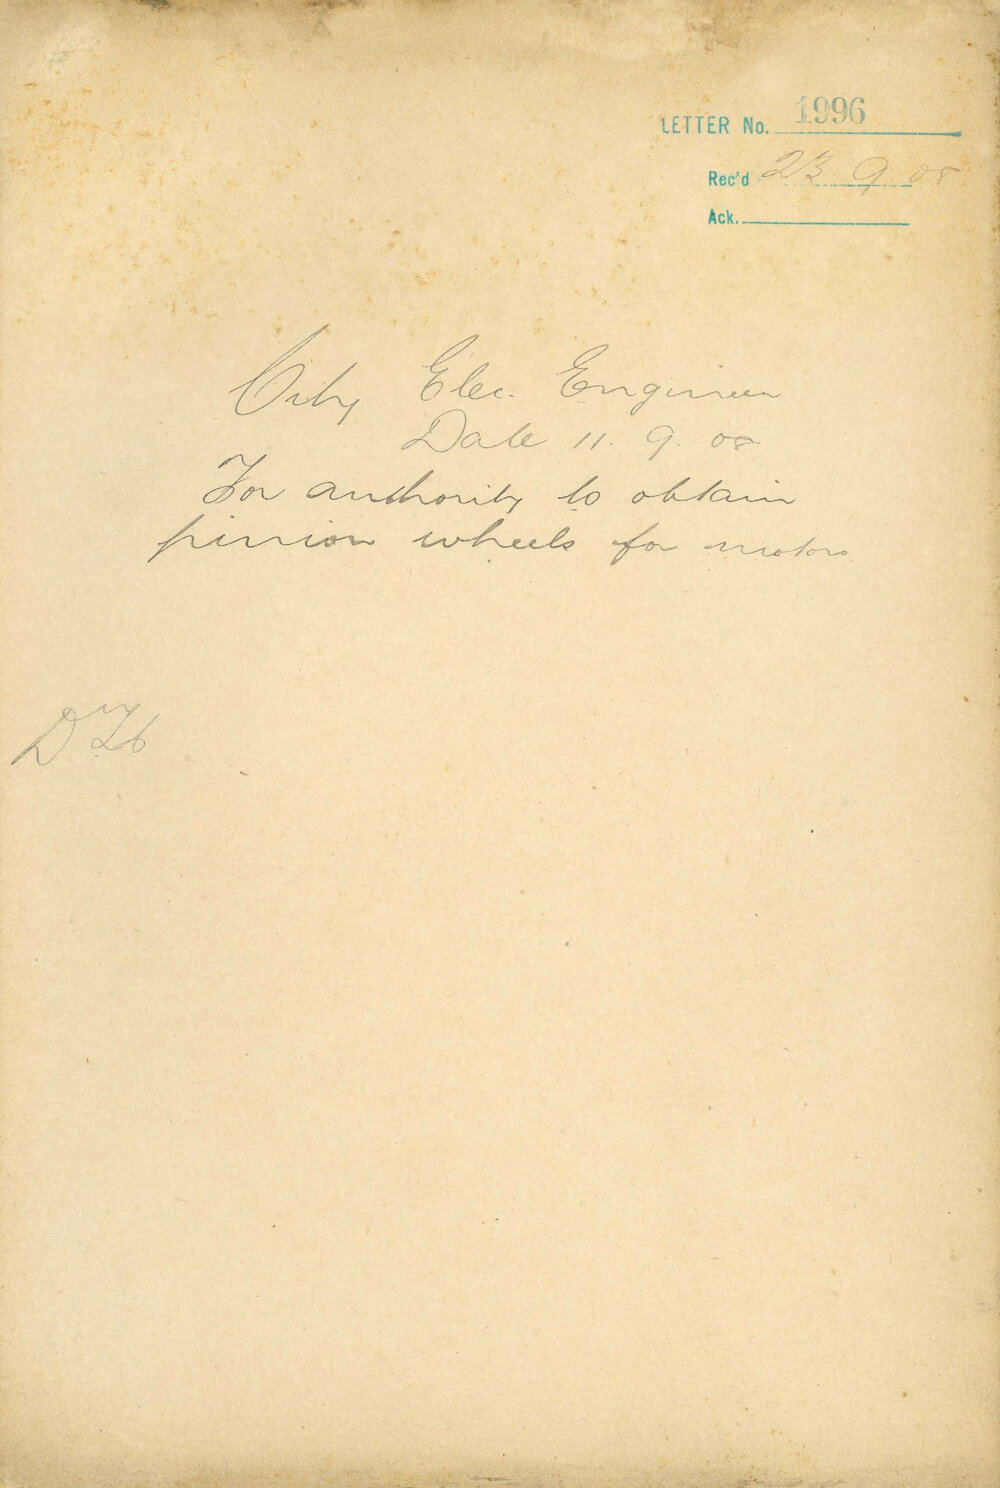 LETTER No. 1996
Rec'd 23 9 08
Ack.
City Elec. Engineer
Date 11. 9. 08
For authority to obtain
pinion wheels for motors